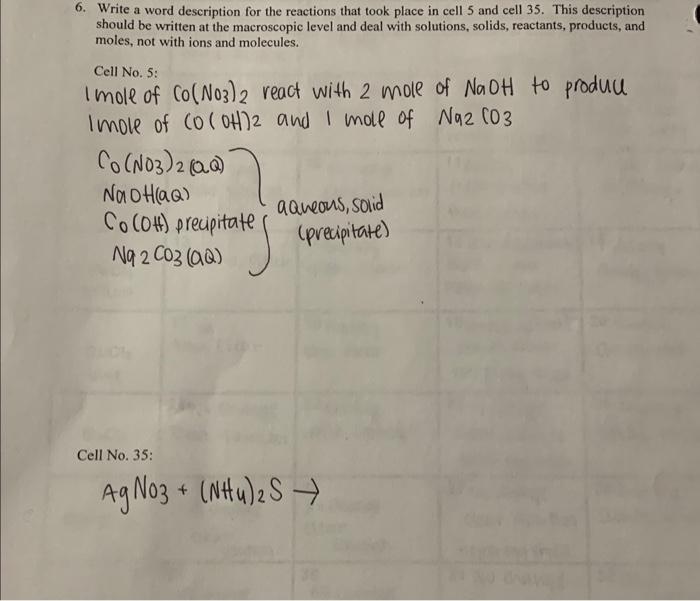 6. Write a word description for the reactions that took place in cell 5 and cell 35. This description
should be written at the macroscopic level and deal with solutions, solids, reactants, products, and
moles, not with ions and molecules.
Cell No. 5:
1 mole of Co(NO3)2 react with 2 mole of NaOH to produce
1 mole of CO(OH)2 and 1 mole of Na2CO3
Co(NO3)2(aQ)
NaOH(aQ)
Co(OH) precipitate
Na2CO3(aQ)
aqueous, solid
(precipitate)
Cell No. 35:
AgNO3 + (NH4)2S →